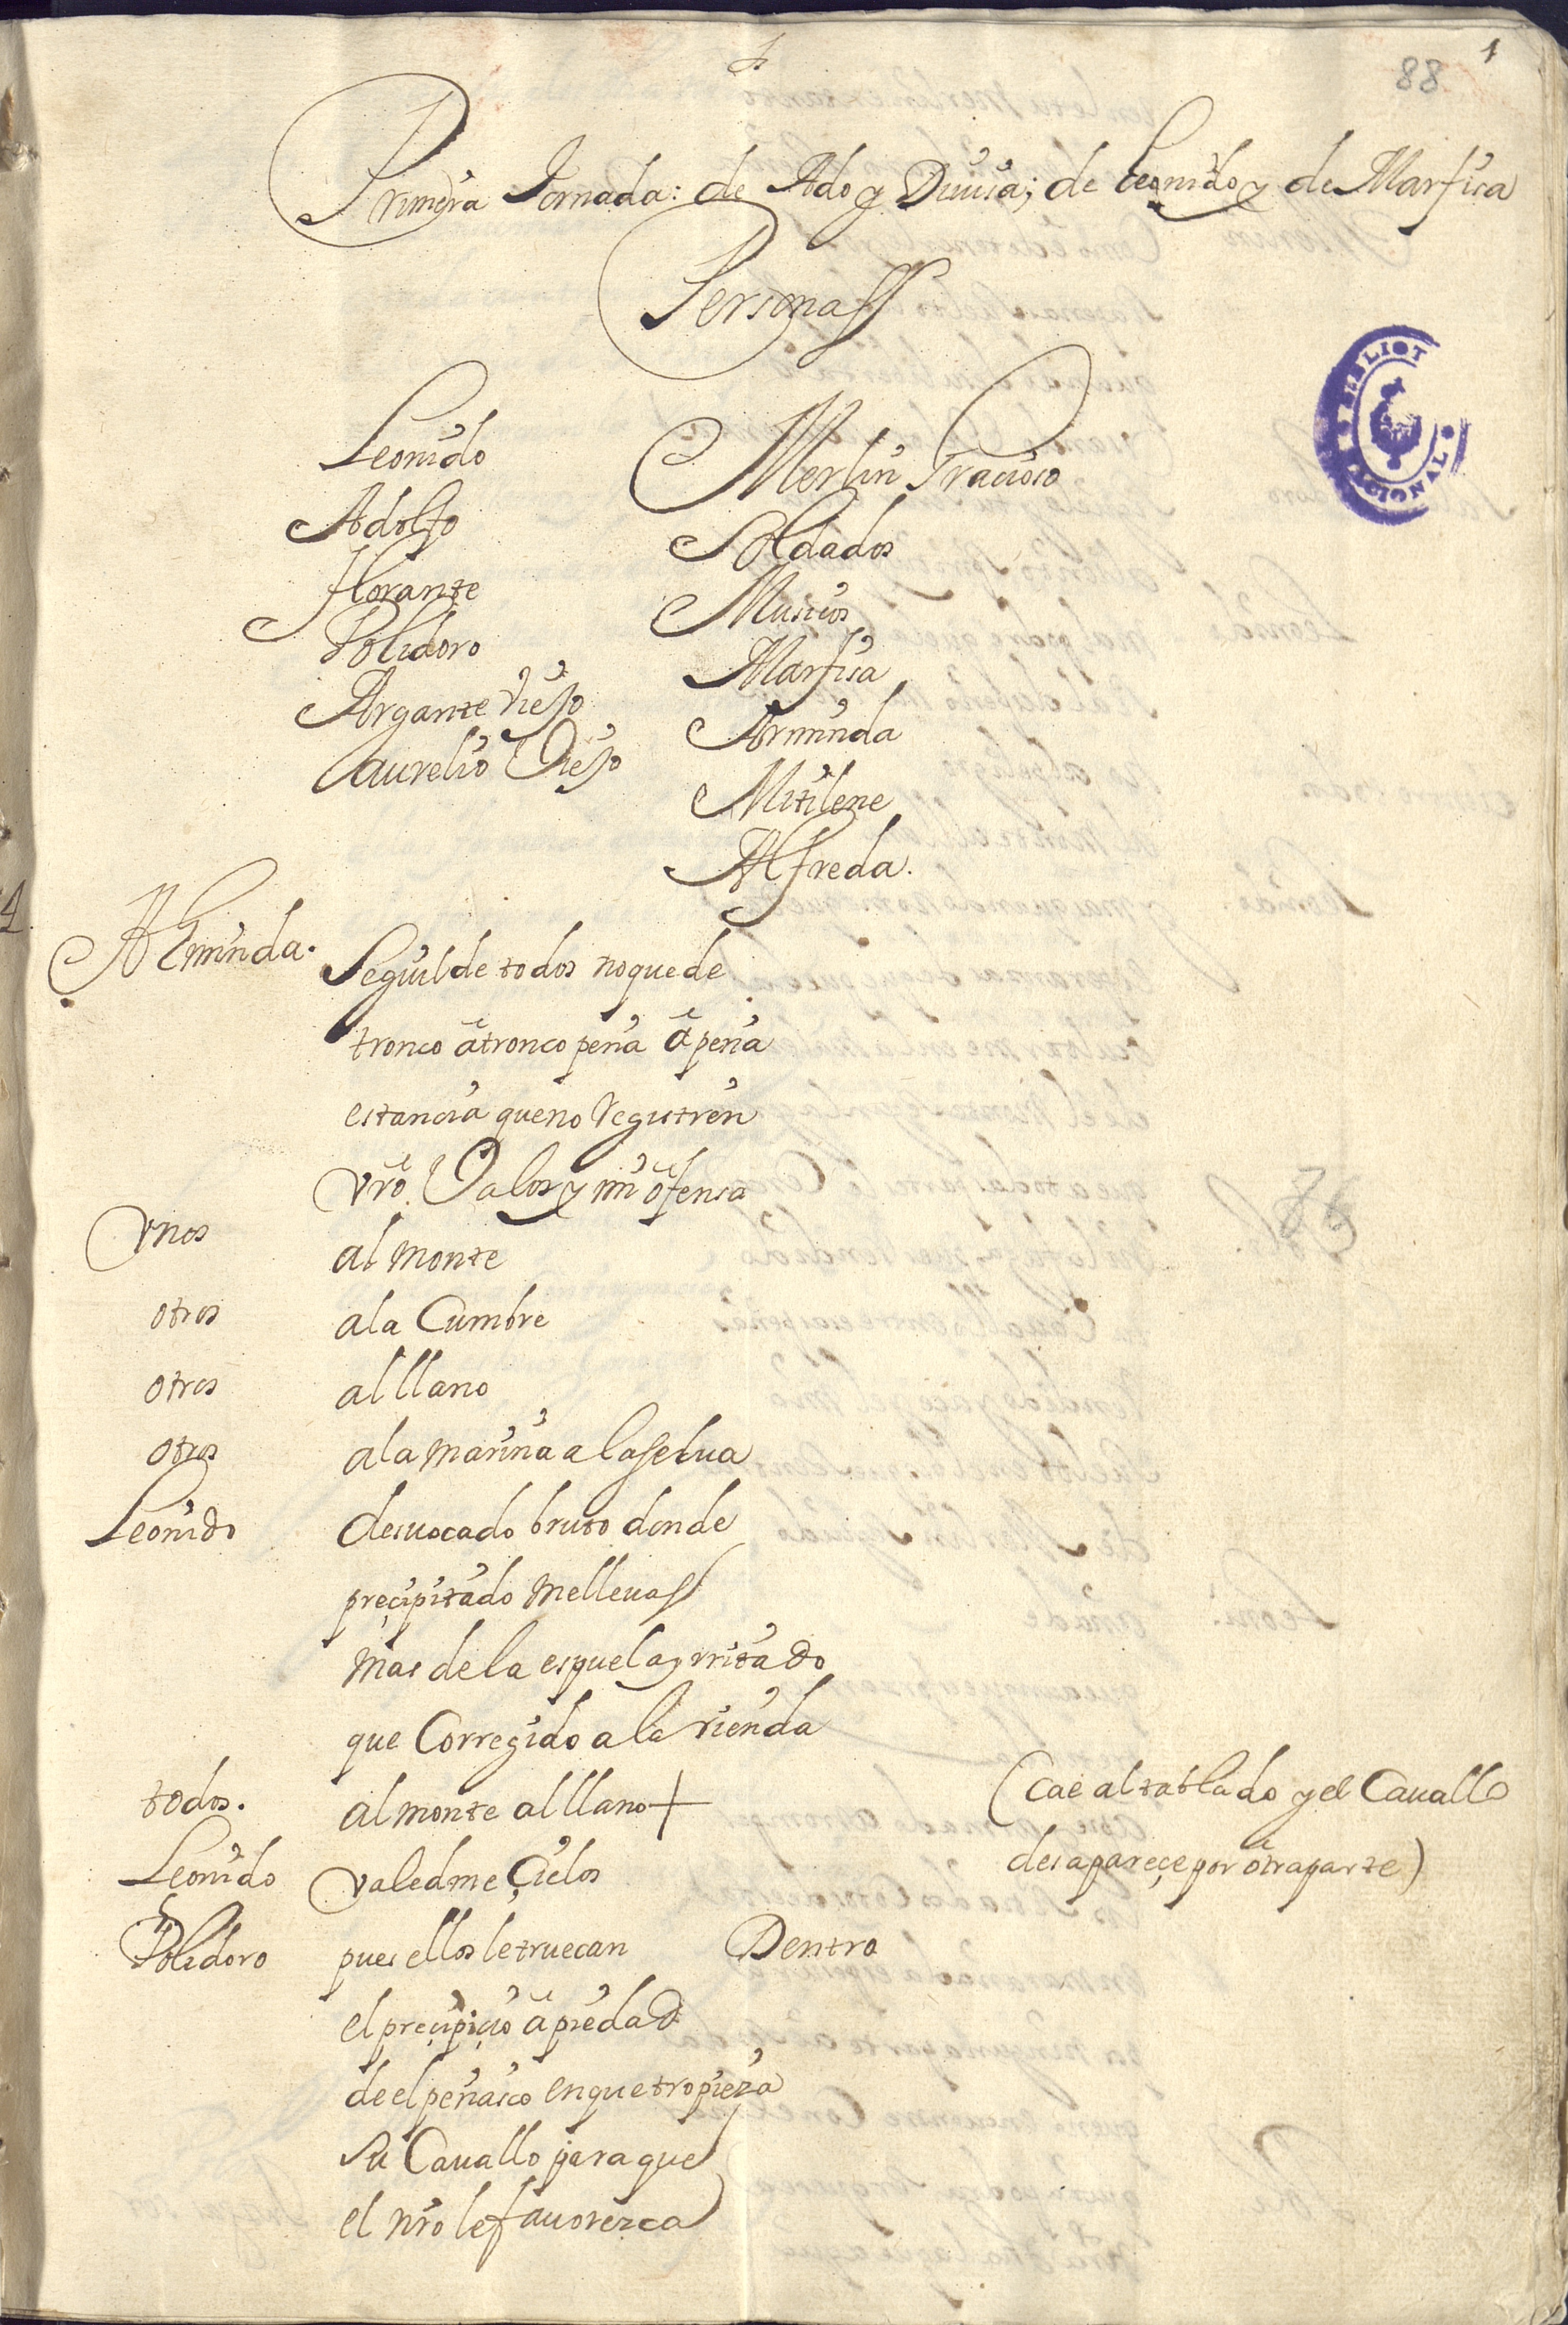 1
88
Primera Jornada: de Ado y Diuisa; de Leonido y de Marfisa
Personass
Leonido
Adolfo
florante
Polidoro
Argante Viejo
aurelio Viejo
Merlin Gracioso
Soldados
Musicos
Marfisa
Arminda
Mitilene
Alfreda.
Arminda. Seguilde todos no quede
tronco á tronco peña á peña
estancia que no Registren
vro. Valor y mi ofensa
Vnos al monte
otros a la Cumbre
otros al llano
otros a la marina a la selua
Leonido desuocado bruto donde
precipitado me lleuass
mas de la espuela yrritado
que Corregido a la rienda
todos. al monte al llano + (Cae al tablado y el Cauallo
desapareçe por otra parte)
Leonido valedme Çielos
Polidoro pues ellos le truecan Dentro
el preçipiçio á piedad
de el peñasco en que tropieza
su Cauallo para que
el nro le fauorezca